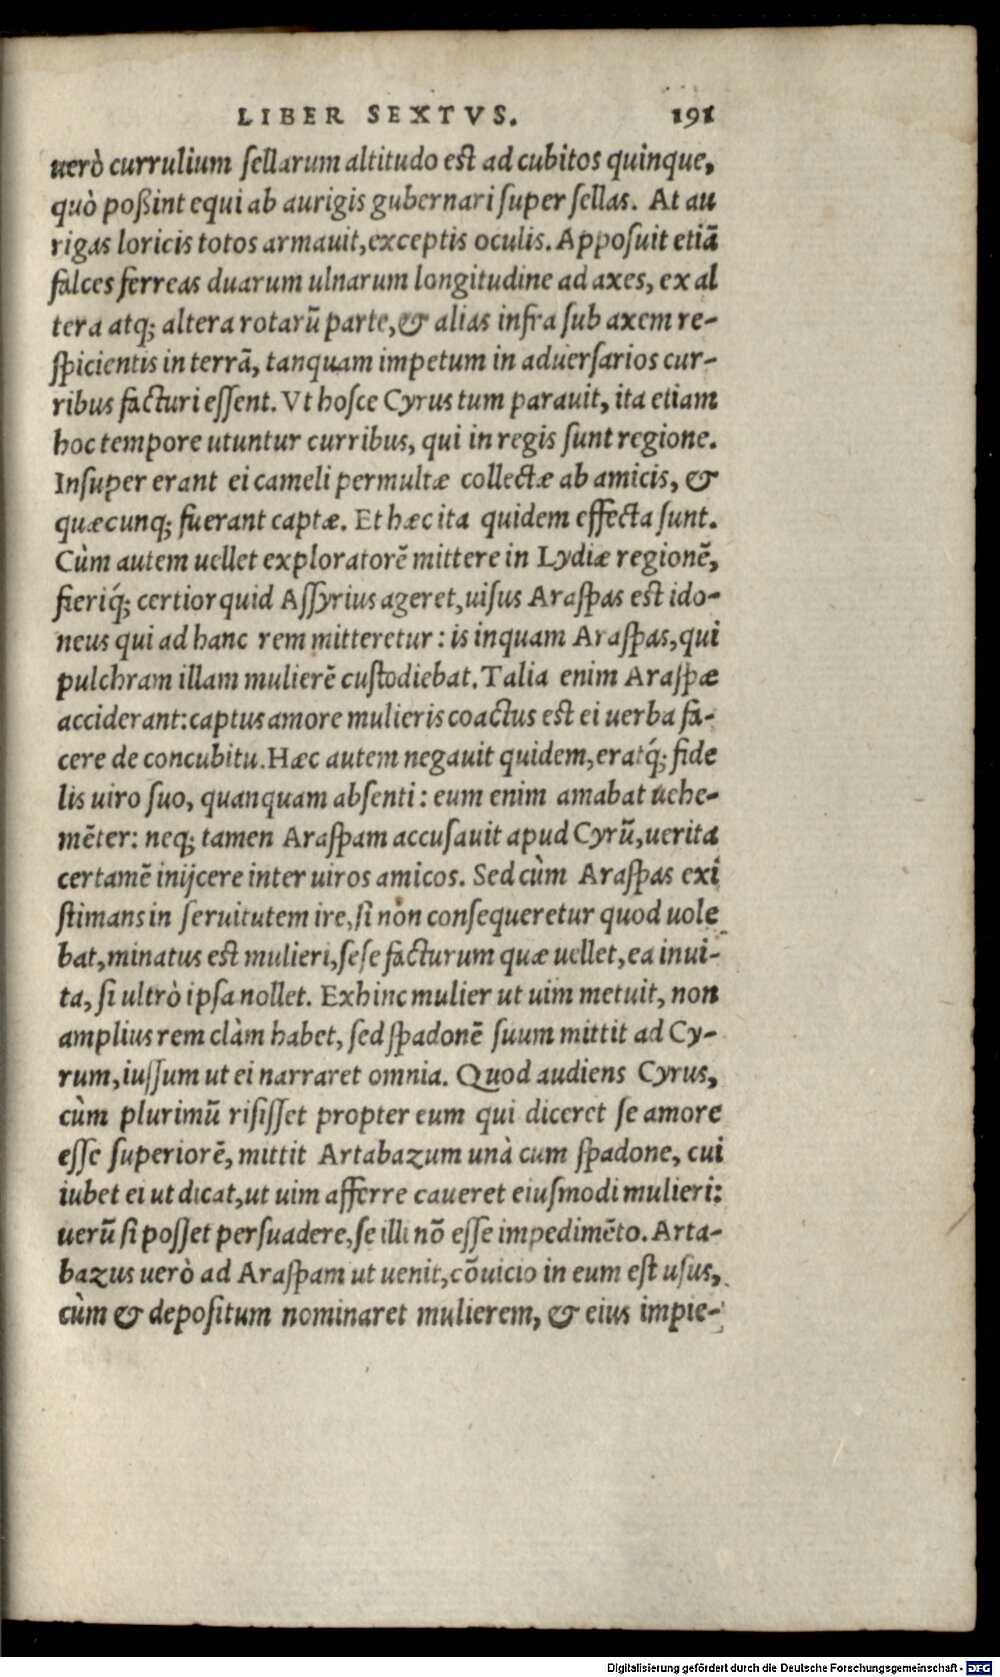 LIBER SEXTVS. 191
uerò currulium sellarum altitudo est ad cubitos quinque,
quò poßint equi ab aurigis gubernari super sellas. At au
rigas loricis totos armauit, exceptis oculis. Apposuit etiã
falces ferreas duarum ulnarum longitudine ad axes, ex al
tera atq; altera rotarũ parte, & alias infra sub axem re-
spicientis in terrã, tanquam impetum in aduersarios cur-
ribus facturi essent. Vt hosce Cyrus tum parauit, ita etiam
hoc tempore utuntur curribus, qui in regis sunt regione.
Insuper erant ei cameli permultæ collectæ ab amicis, &
quæcunq; fuerant captæ. Et hæc ita quidem effecta sunt.
Cùm autem uellet exploratorẽ mittere in Lydiæ regionẽ,
fieriq́; certior quid Assyrius ageret, uisus Araspas est ido-
neus qui ad hanc rem mitteretur: is inquam Araspas, qui
pulchram illam mulierẽ custodiebat. Talia enim Araspæ
acciderant: captus amore mulieris coactus est ei uerba fa-
cere de concubitu. Hæc autem negauit quidem, eratq́; fide
lis uiro suo, quanquam absenti: eum enim amabat uehe-
mẽter: neq; tamen Araspam accusauit apud Cyrũ, uerita
certamẽ inijcere inter uiros amicos. Sed cùm Araspas exi
stimans in seruitutem ire, si non consequeretur quod uole
bat, minatus est mulieri, sese facturum quæ uellet, ea inui-
ta, si ultrò ipsa nollet. Exhinc mulier ut uim metuit, non
amplius rem clàm habet, sed spadonẽ suum mittit ad Cy-
rum, iussum ut ei narraret omnia. Quod audiens Cyrus,
cùm plurimũ risisset propter eum qui diceret se amore
esse superiorẽ, mittit Artabazum unà cum spadone, cui
iubet ei ut dicat, ut uim afferre caueret eiusmodi mulieri:
uerũ si posset persuadere, se illi nõ esse impedimẽto. Arta-
bazus uerò ad Araspam ut uenit, cõuicio in eum est usus,
cùm & depositum nominaret mulierem, & eius impie-
Digitalisierung gefördert durch die Deutsche Forschungsgemeinschaft - DFG